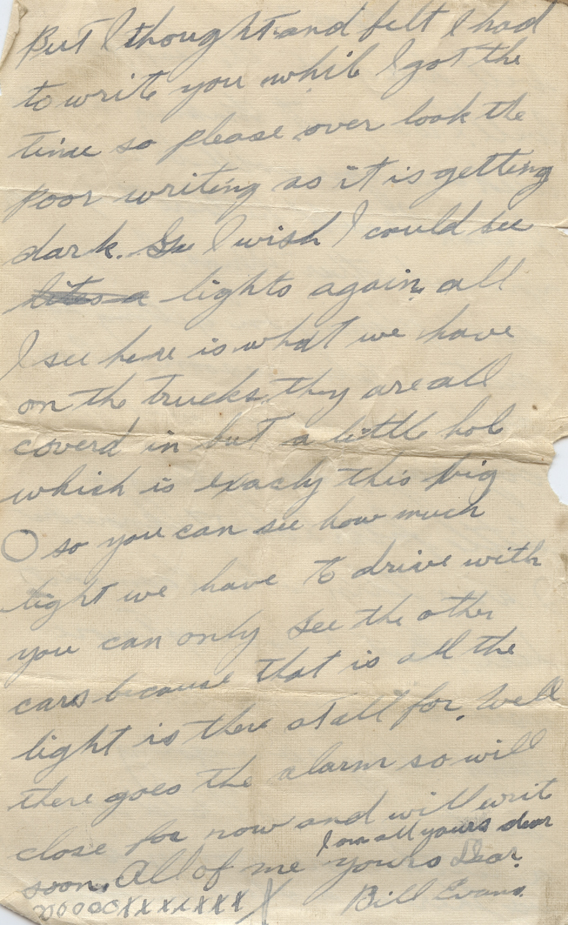 But I thought and felt I had
to write you while I got the
time so please over look the
poor writing as it is getting
dark. So I wish I could see
lights again, all
I see here is what we have
on the trucks they are all
coverd in but a little hol
which is exacly this big
O so you can see how much
light we have to drive with
you can only see the other
cars because that is all the
light is there atall for. Well
there goes the alarm so will
close for now and will writ
soon. All of me I am all yours dear
yours Dear.
Bill Evans.
OOOOOXXXXXXXX X